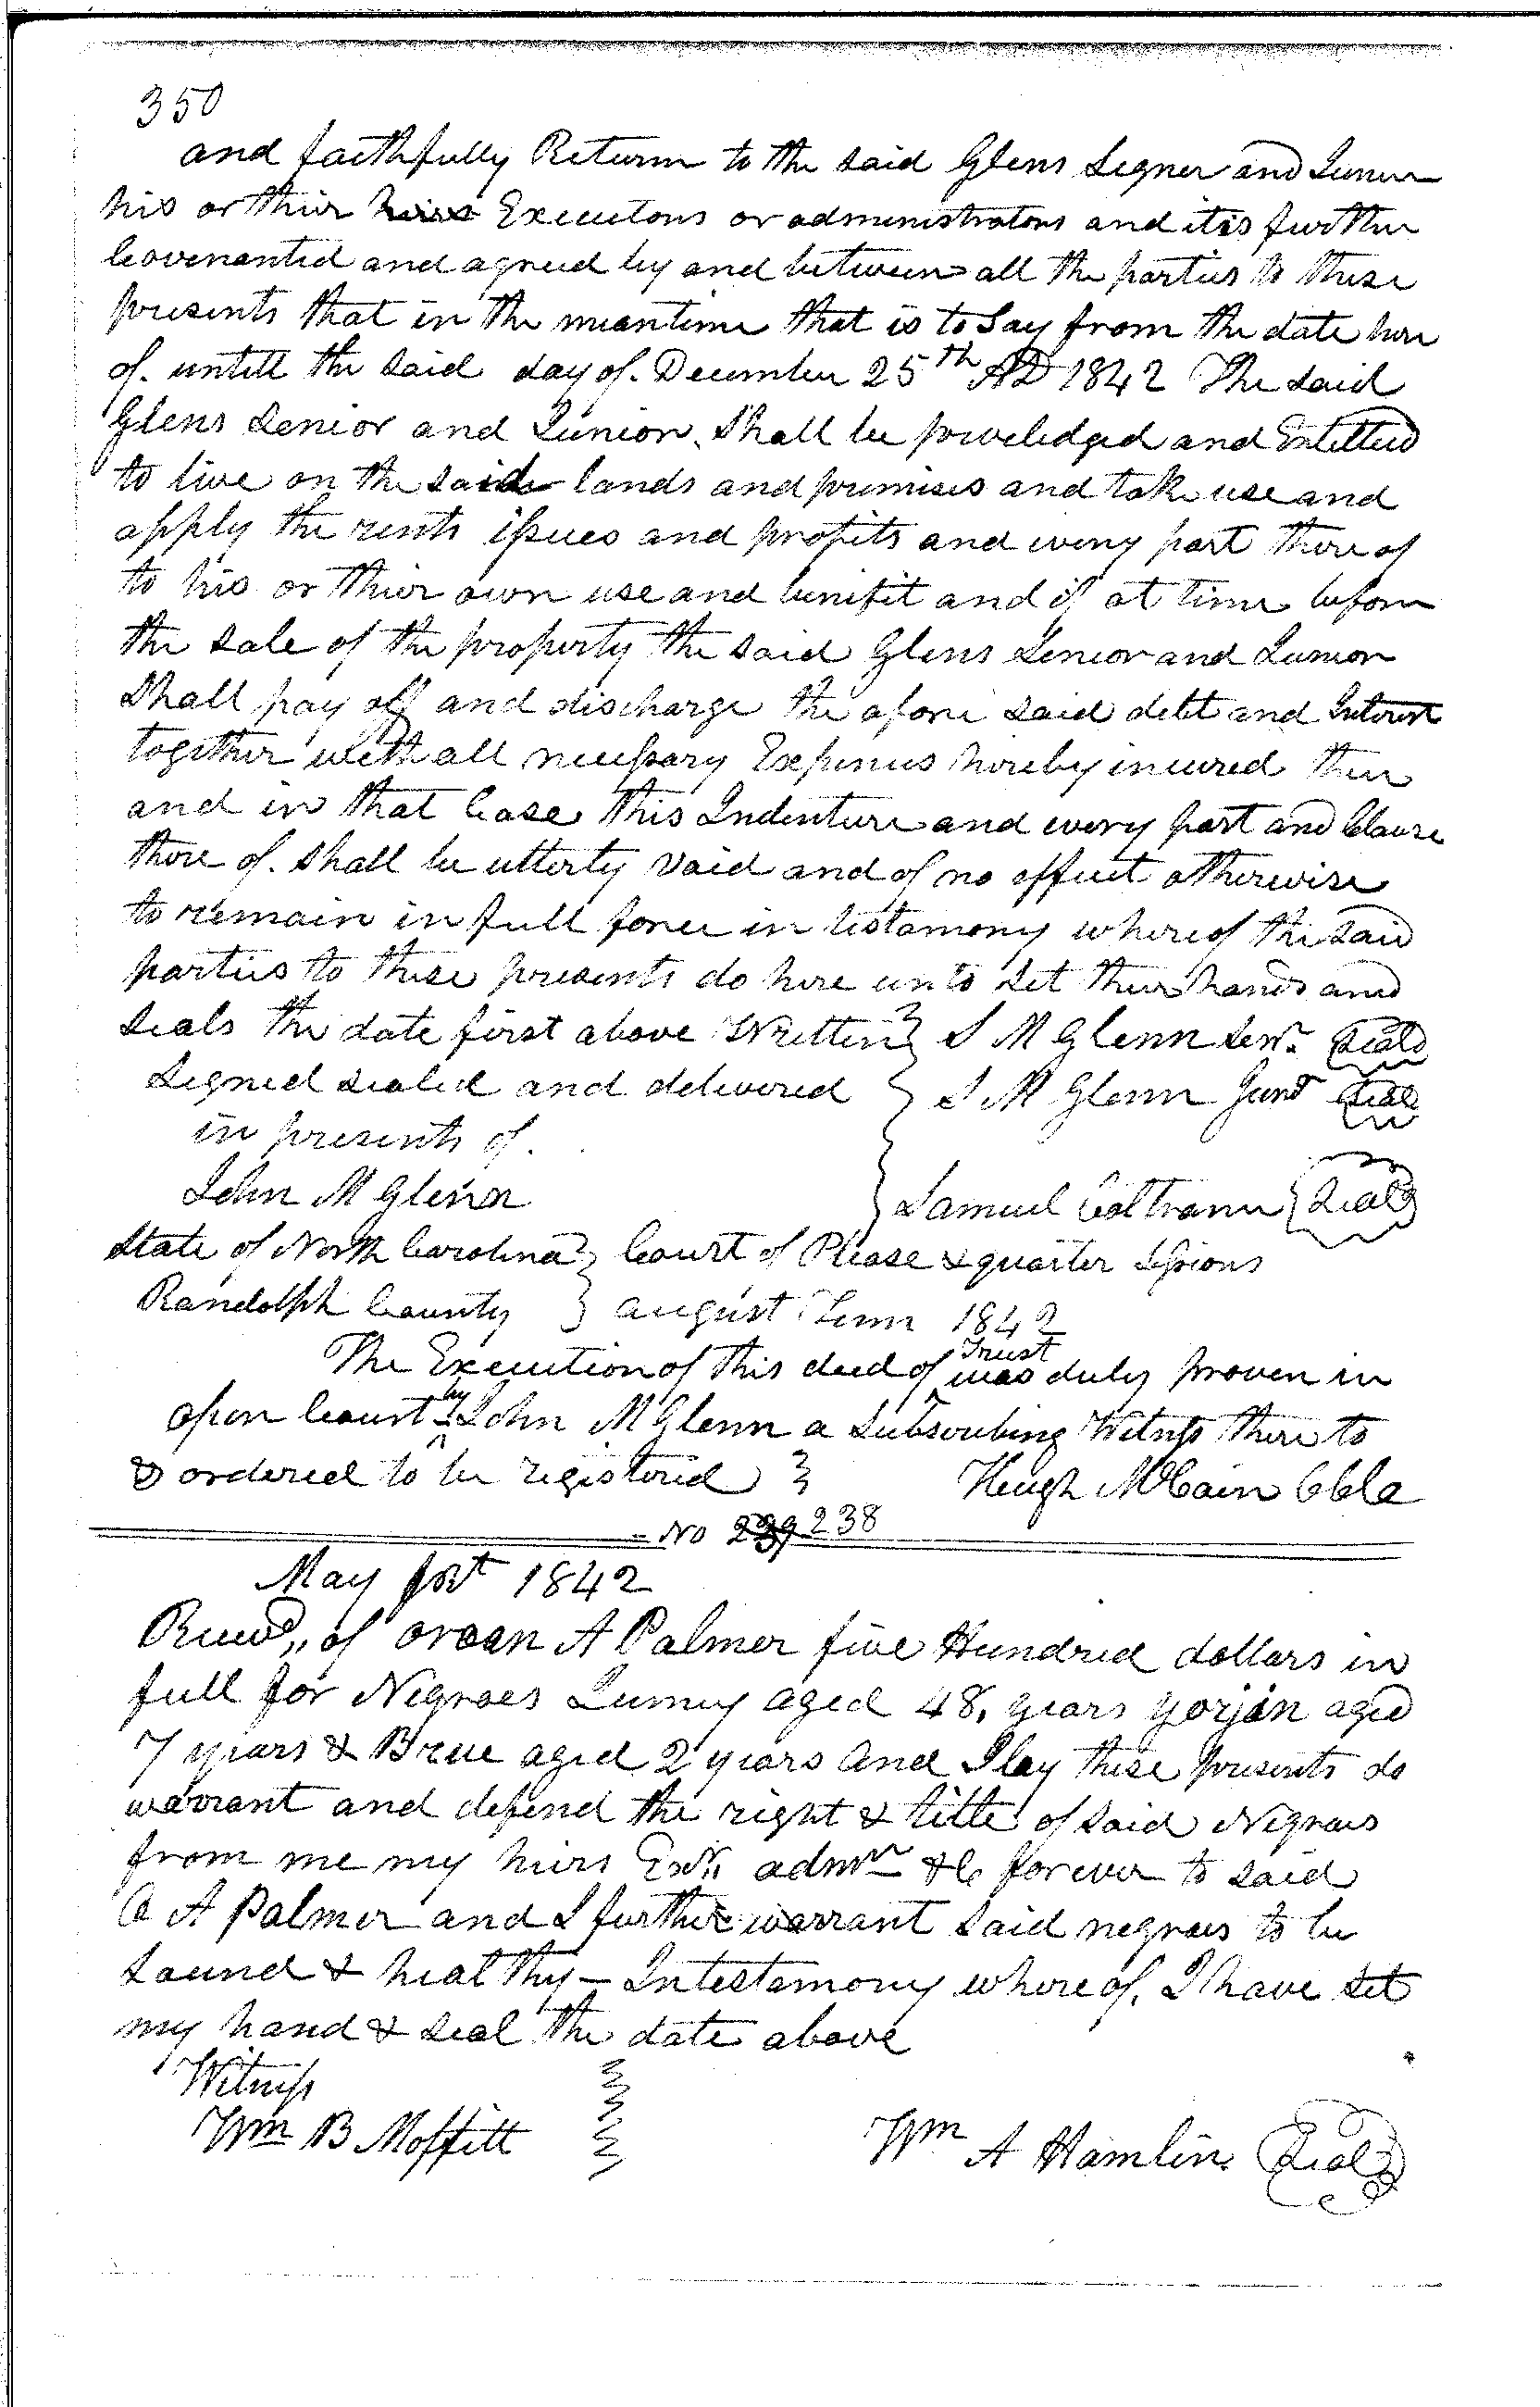 350
and faithfully Return to the said Glens Segner and Junior
his or thier heirs Executons or administrators and it is further
Covenanted and agreed by and between all the parties to these
presents that in the meantime that is to Say from the date here
of. untill the said day of. December 25th AD 1842 The said
Glens Senior and Junion. Shall be priveledged and Entitled
to live on the said lands and premises and take use and
apply the rents issues and profits and every part there of
to his or thier own use and benifit and if at time before
the sale of the property the said Glens Senior and Junior
Shall pay off and discharge the afore said debt and Interest
together with all necessary Expences hereby incured then
and in that Case this Indenture and every part and Clause
there of. shall be utterly Void and of no effect otherwise
to remain in full force in testamony where of the said
parties to these presents do here unto set their hands and
seals the date first above Written } S M Glenn Senr. Seal
Signed sealed and delivered } S M Glenn Junr Seal
in presents of.
John M Glenn } Samuel Coltrane Seal
State of North Carolina } Court of Please & quarter Sessions
Randolph County } August Term 1842
The Execution of this deed of Trust was duly proven in
open Court by John M Glenn a Subscribing Witness there to
& ordered to be registered } Hugh McCain Clk
No 239 238
May 1842
Recd,, of A Palmer five Hundred dollars in
full for Negroes aged 48, years aged
7 years & aged 2 years and I by these presents do
warrant and defend the right & title of said Negroes
from me my heirs Exr,, admr &c forever to said
O A Palmer and I further warrant said negroes to be
sound & healthy – Intestamony where of, I have set
my hand & seal the date above
Witness
Wm B Moffitt } Wm A Hamlin Seal